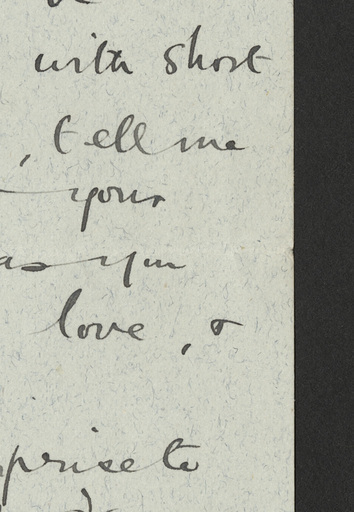 with short
, tell me
your
as you
love, &
prise to